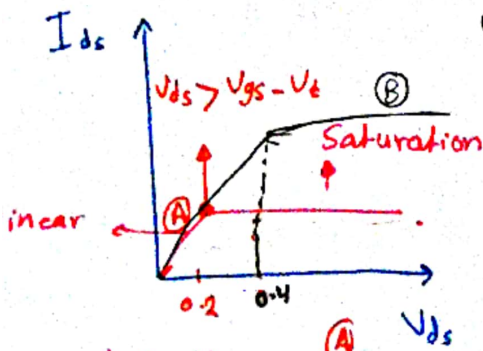 Ids
Vds > Vgs - Vt
B
Saturation
A
inear
0.2
0.4
Vds
A